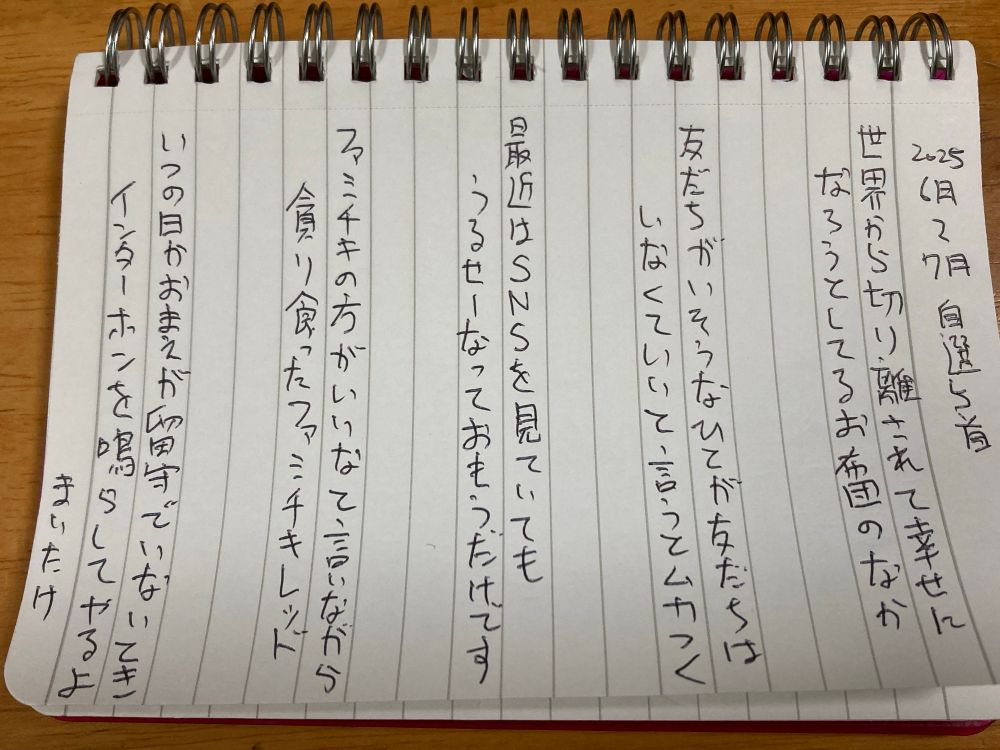 2025 6月〜7月 自選5首
世界から切り離されて幸せに
なろうとしてるお布団のなか
友だちがいそうなひとが友だちは
いなくていいと言うとムカつく
最近はSNSを見ていても
うるせーなっておもうだけです
ファミチキの方がいいなと言いながら
貪り食ったファミチキレッド
いつの日かおまえが留守でいないとき
インターホンを鳴らしてやるよ
まいたけ